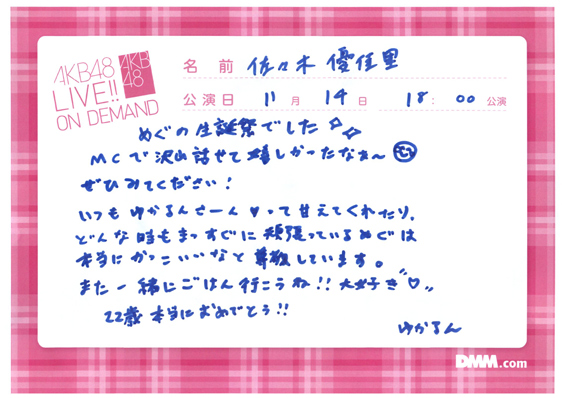 AKB48
LIVE!!
ON DEMAND
AKB
48
名前 佐々木 優佳里
公演日 11月 14日 18:00公演
めぐの生誕祭でした
MCで沢山話せて嬉しかったなぁ〜
ぜひみてください!
いつもゆかるんさーん♥って甘えてくれたり、
どんな時もまっすぐに頑張っているめぐは
本当にかっこいいなと尊敬しています。
また一緒にごはん行こうね!!大好き♡
22歳本当におめでとう!!
ゆかるん
DMM.com